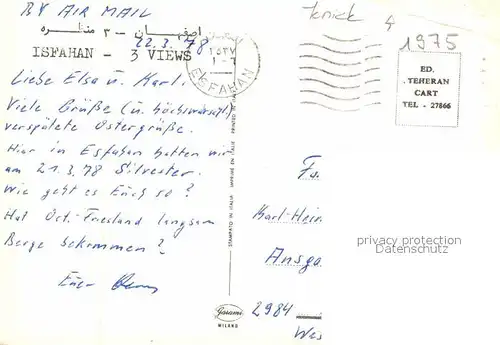 BY AIR MAIL
اصفهان - ٣ منظره
ISFAHAN - 3 VIEWS
22.3.78
٢٥٣٧
ESFAHAN
4
1975
ED.
TEHERAN
CART
TEL - 27866
Liebe Elsa u. Karl.
Viele Grüße (u. höchstwarsch.
verspätete Ostergrüße.
Hier in Esfahan hatten wir
am 21.3.78 Silvester.
Wie geht es Euch so?
Hat Ost-Friesland langsam
Berge bekommen?
Euer
STAMPATO IN ITALIA IMPRIMÉ EN ITALIE PRINTED IN
Garami
MILANO
Fa.
Karl-Hein
privacy protection
Datenschutz
Ansga
2984
Wes